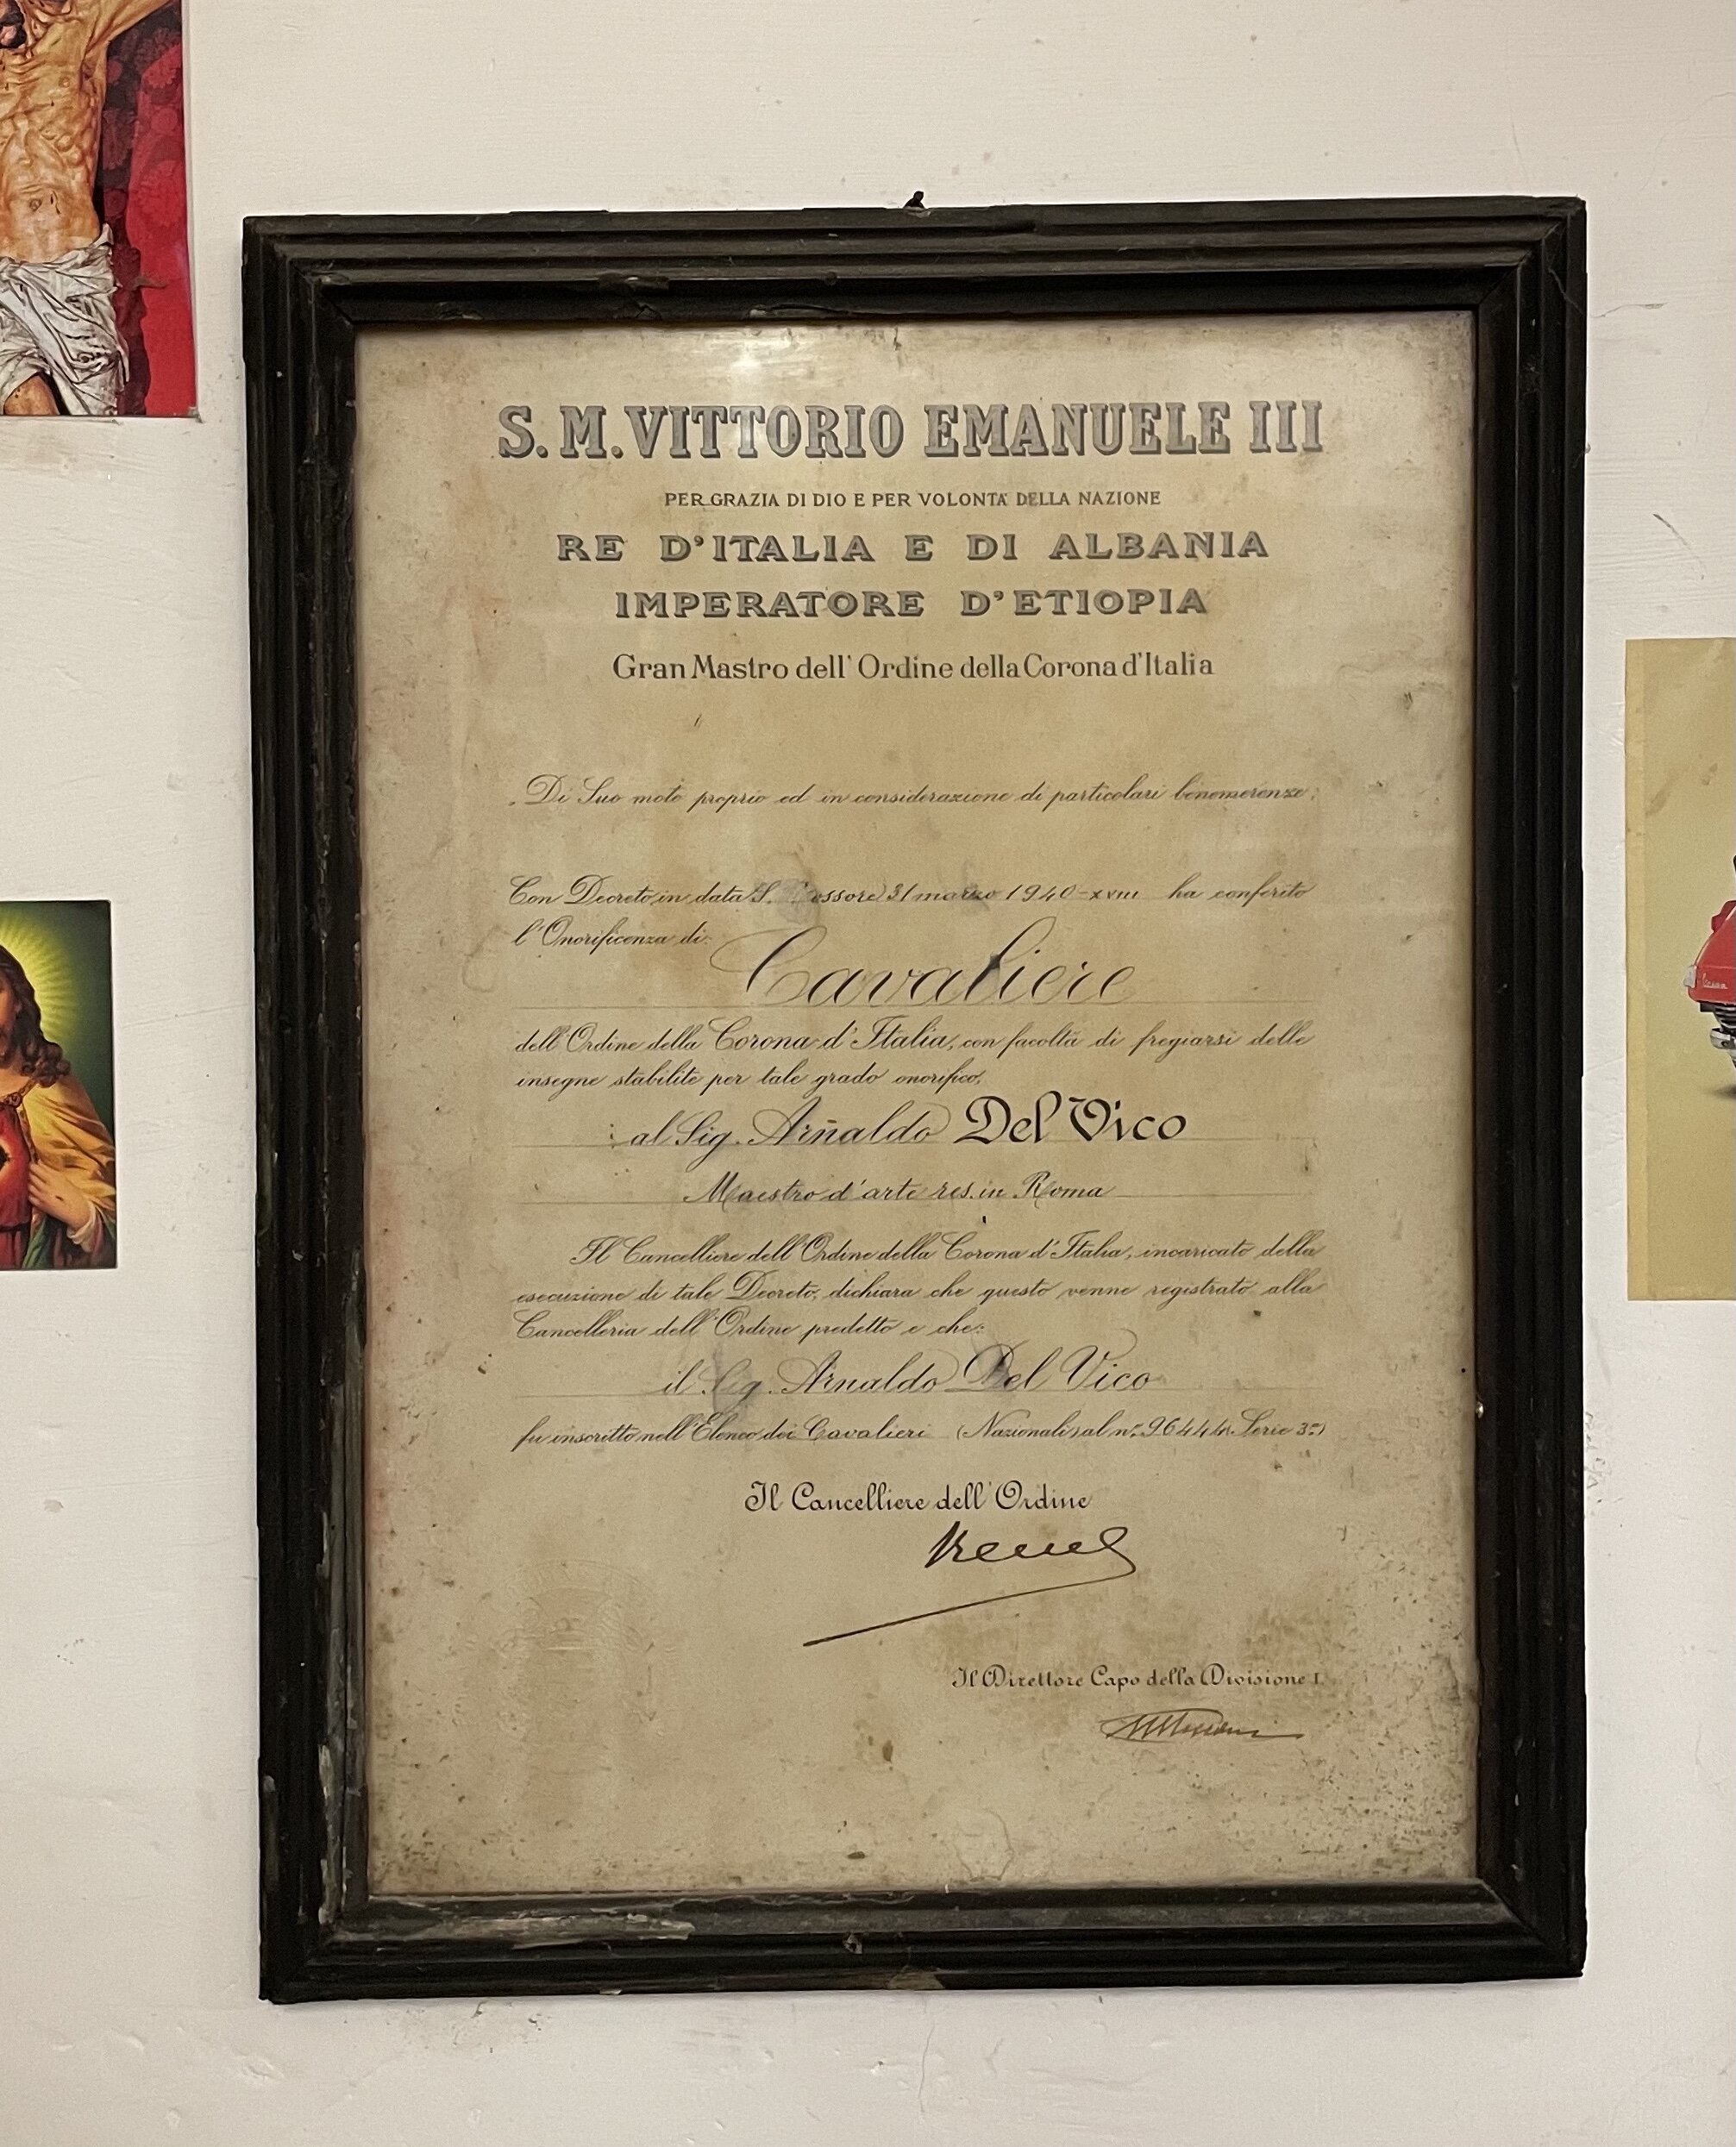 S. M. VITTORIO EMANUELE III
PER GRAZIA DI DIO E PER VOLONTA' DELLA NAZIONE
RE D'ITALIA E DI ALBANIA
IMPERATORE D'ETIOPIA
Gran Mastro dell' Ordine della Corona d'Italia
Di Suo moto proprio ed in considerazione di particolari benemerenze;
Con Decreto in data S. 31 marzo 1940-XVIII ha conferito
l'Onorificenza di:
Cavaliere
dell'Ordine della Corona d'Italia, con facoltà di fregiarsi delle
insegne stabilite per tale grado onorifico,
al Sig. Arnaldo Del Vico
Maestro d'arte res. in Roma
Il Cancelliere dell'Ordine della Corona d'Italia, incaricato della
esecuzione di tale Decreto, dichiara che questo venne registrato alla
Cancelleria dell'Ordine predetto e che:
il Sig. Arnaldo Del Vico
fu inscritto nell'Elenco dei Cavalieri (Nazionali) al n.° Serie 3ª)
Il Cancelliere dell'Ordine
Il Direttore Capo della Divisione I